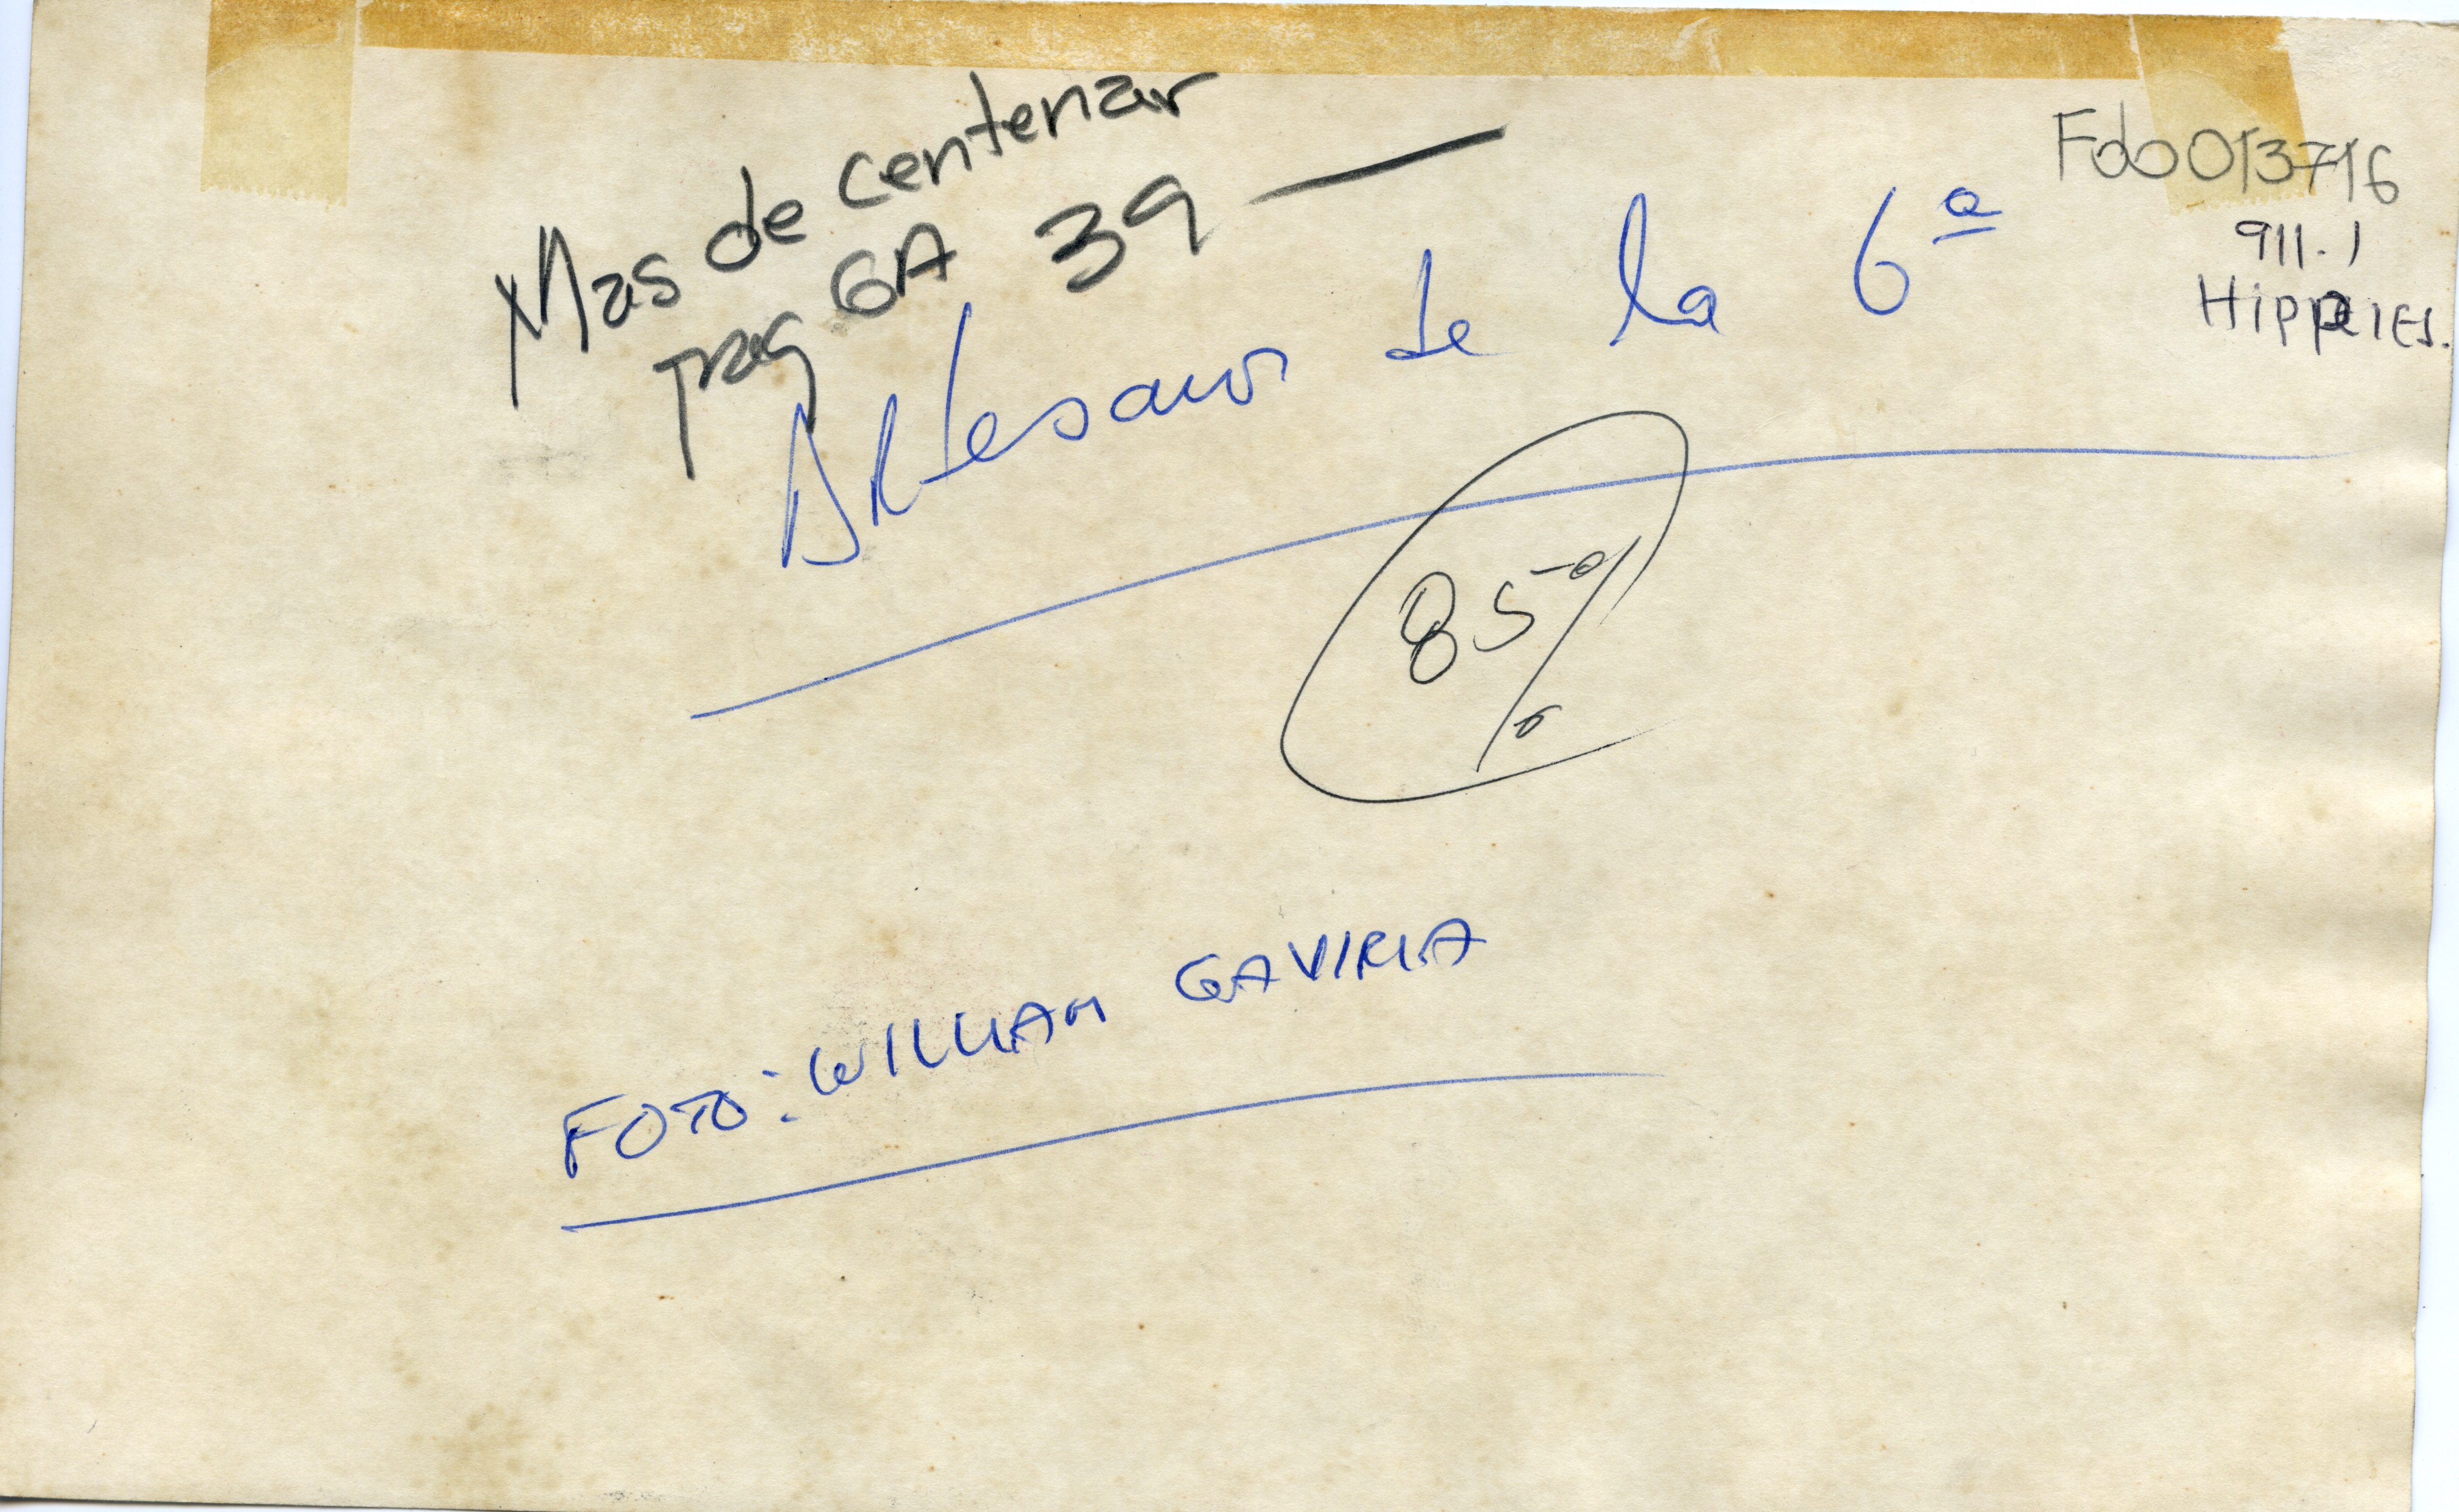 Mas de centenar
pag 6A 39 —
Fdo013716
911.1
Hippies.
Artesanos de la 6ª
85%
FOTO: WILLIAM GAVIRIA